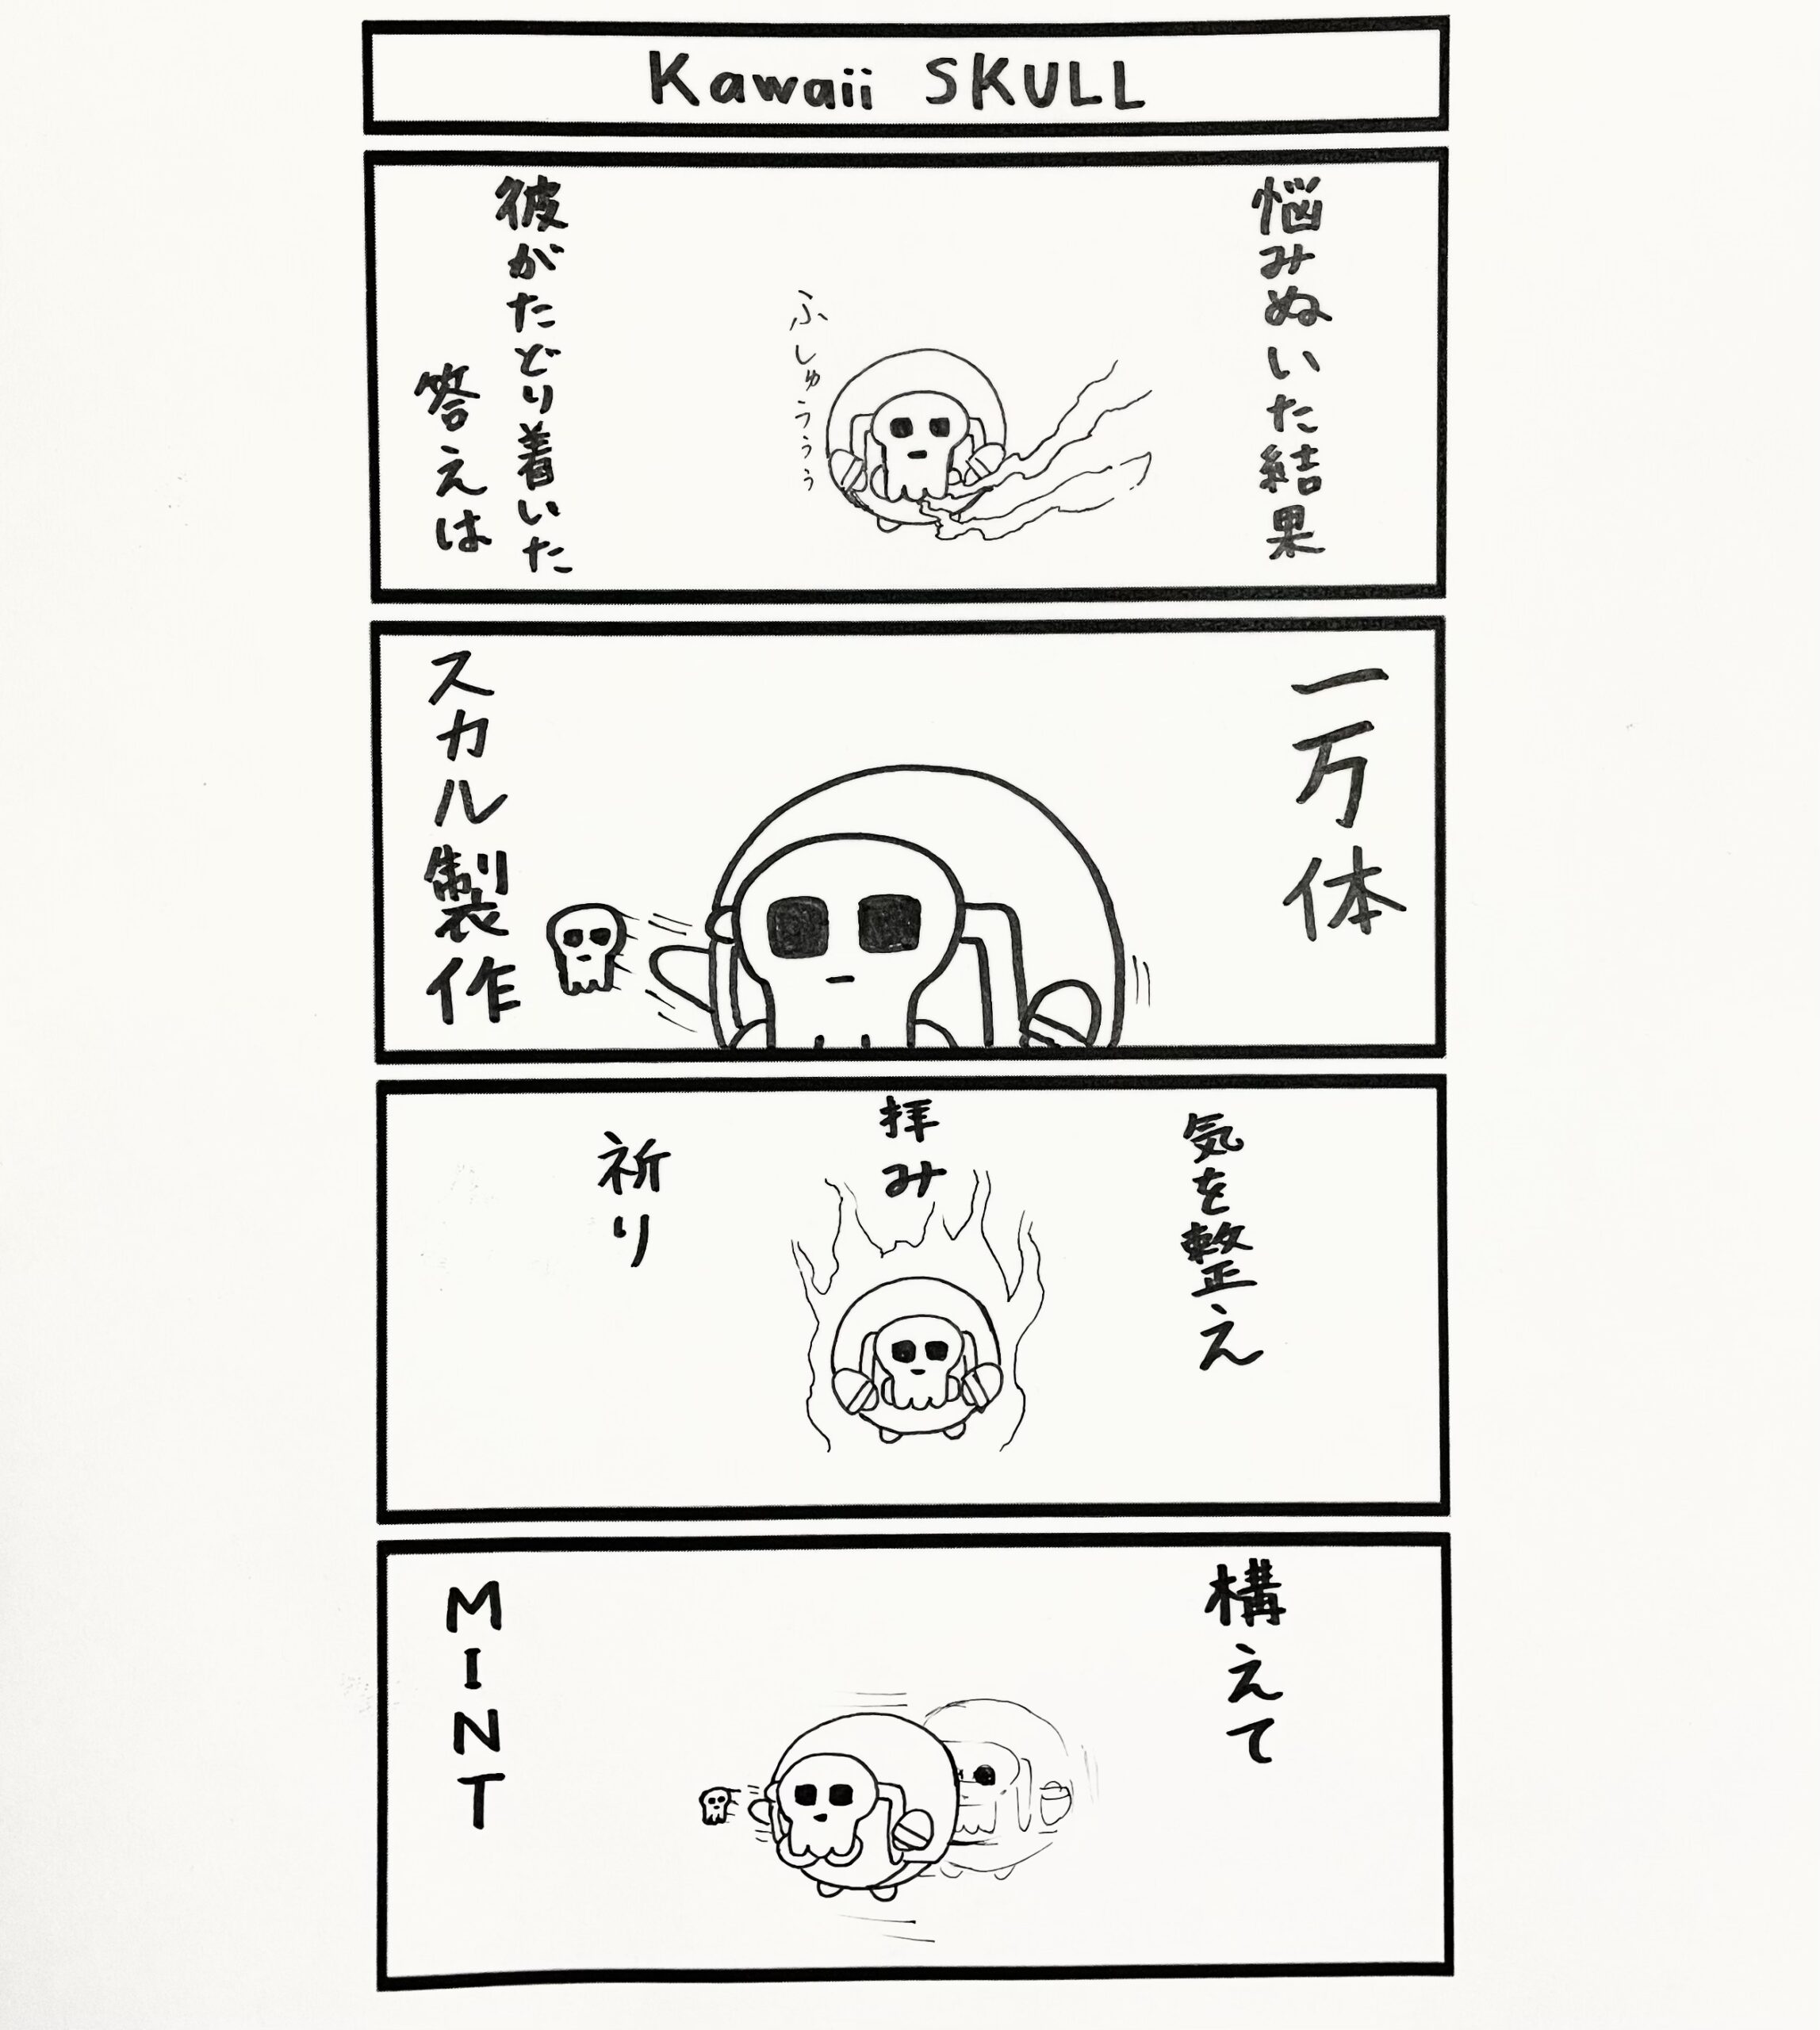 Kawaii SKULL
悩みぬいた結果
ふしゅううぅ
彼がたどり着いた
答えは
一万体
スカル製作
気を整え
拝み
祈り
構えて
MINT